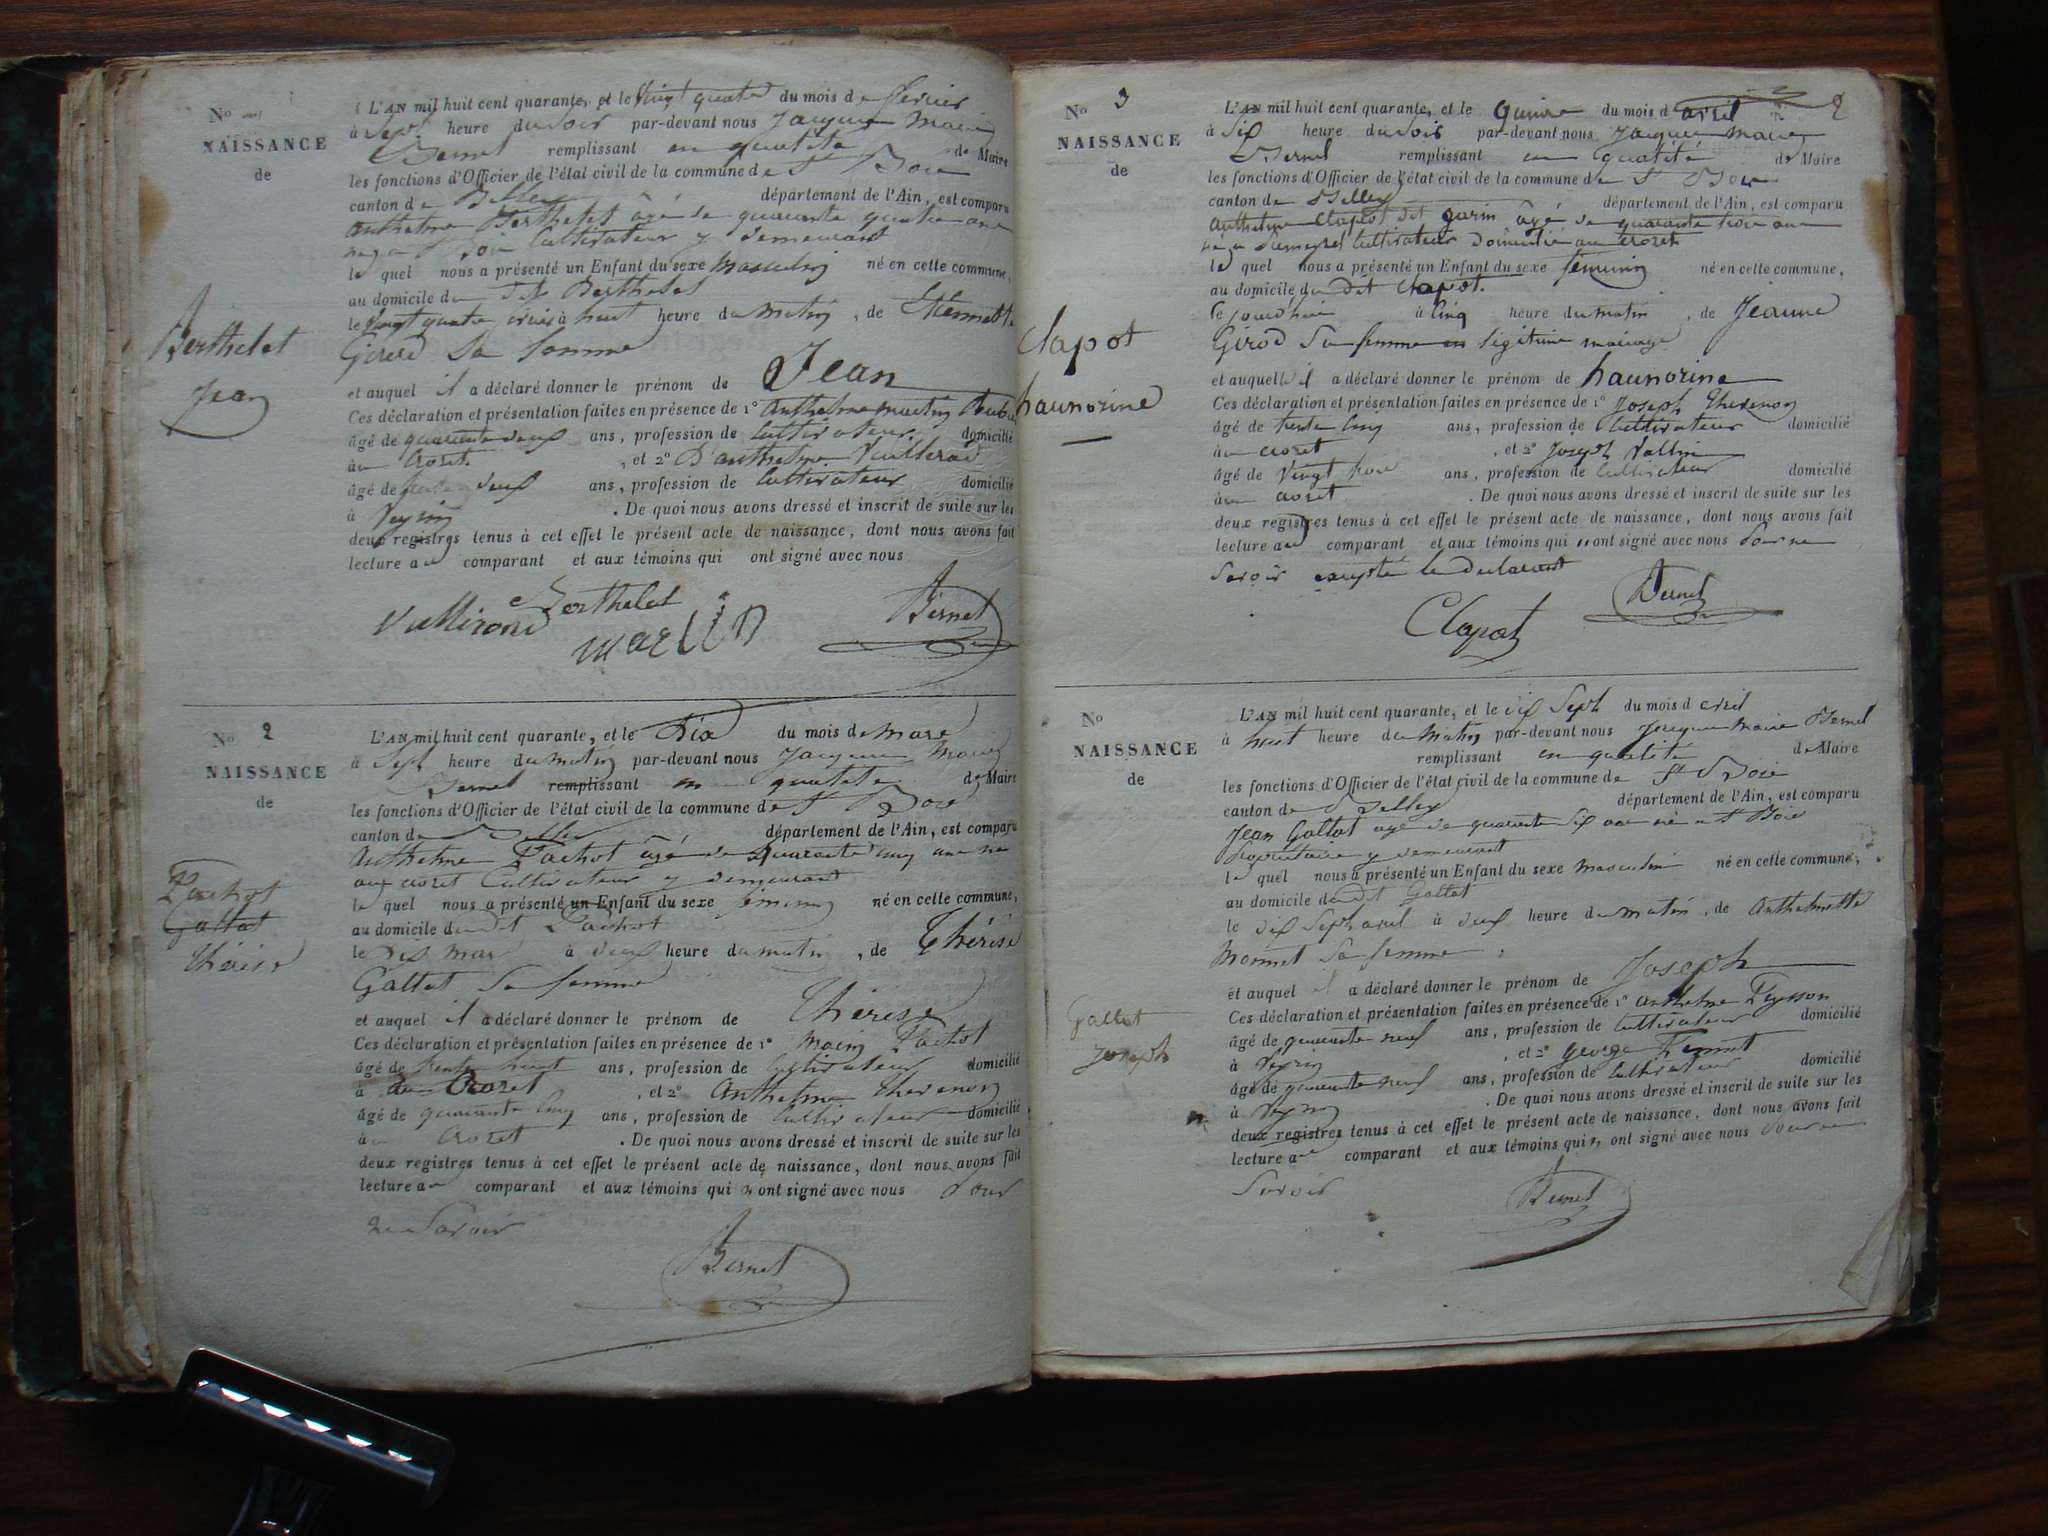 No
NAISSANCE
de
Berthelet
Jean
L'AN mil huit cent quarante, et le vingt quatre du mois de fevrier
à Sept heure du Soir par-devant nous Jacques Marie
Bernet remplissant en qualité de Maire
les fonctions d'Officier de l'état civil de la commune de St Boie
canton de Belley département de l'Ain, est comparu
Anthelme Berthelet âgé de quarante quatre ans
né a St Boie Cultivateur y demeurant
le quel nous a présenté un Enfant du sexe Masculin né en cette commune,
au domicile du dit Berthelet
le vingt quatre fevrier à huit heure du Matin, de Etiennette
Girerd Sa femme
et auquel il a déclaré donner le prénom de Jean
Ces déclaration et présentation faites en présence de 1º Anthelme Martin
âgé de quarante deux ans, profession de Cultivateur domicilié
au Crozet, et 2º D'anthelme Vuillerod
âgé de deux ans, profession de Cultivateur domicilié
à Veyrin. De quoi nous avons dressé et inscrit de suite sur les
deux registres tenus à cet effet le présent acte de naissance, dont nous avons fait
lecture au comparant et aux témoins qui ont signé avec nous
Berthelet
Vullierond martin Bernet
No 2
NAISSANCE
de
Pachot
Gallat
thérèse
L'AN mil huit cent quarante, et le Dix du mois de Mars
à Sept heure du matin par-devant nous Jacques Marie
Bernet remplissant en qualité de Maire
les fonctions d'Officier de l'état civil de la commune de St Boie
canton de Belley département de l'Ain, est comparu
Anthelme Pachot âgé de quarante cinq ans né
au crozet Cultivateur y demeurant
le quel nous a présenté un Enfant du sexe féminin né en cette commune,
au domicile du dit Pachot
le dix mars à deux heure du matin, de Thérèse
Gallat Sa femme
et auquel il a déclaré donner le prénom de Thérèse
Ces déclaration et présentation faites en présence de 1º Marin Pachot
âgé de trente huit ans, profession de Cultivateur domicilié
à au Crozet, et 2º Anthelme Thevenon
âgé de quarante cinq ans, profession de Cultivateur domicilié
au Crozet. De quoi nous avons dressé et inscrit de suite sur les
deux registres tenus à cet effet le présent acte de naissance, dont nous avons fait
lecture au comparant et aux témoins qui n'ont signé avec nous pour
ne Savoir
Bernet
2
No 3
NAISSANCE
de
Clapot
haunorine
L'AN mil huit cent quarante, et le quinze du mois d avril
à Six heure du Soir par-devant nous Jacques Marie
Bernet remplissant en qualité de Maire
les fonctions d'Officier de l'état civil de la commune de St Boie
canton de Belley département de l'Ain, est comparu
Anthelme Clapot dit garin âgé de quarante trois ans
né a Cultivateur domicilié au Crozet
le quel nous a présenté un Enfant du sexe féminin né en cette commune,
au domicile du dit Clapot.
le jourd'hui à Cinq heure du matin, de Jeanne
Girod Sa femme en légitime mariage
et auquel il a déclaré donner le prénom de haunorine
Ces déclaration et présentation faites en présence de 1º Joseph Thevenon
âgé de trente Cinq ans, profession de Cultivateur domicilié
au crozet, et 2º Joseph Vallin
âgé de Vingt trois ans, profession de Cultivateur domicilié
au crozet. De quoi nous avons dressé et inscrit de suite sur les
deux registres tenus à cet effet le présent acte de naissance, dont nous avons fait
lecture au comparant et aux témoins qui n'ont signé avec nous pour ne
Savoir excepté le declarant
Clapot Bernet
No
NAISSANCE
de
Gallat
Joseph
L'AN mil huit cent quarante, et le dix Sept du mois d avril
à huit heure du Matin par-devant nous Jacques Marie Bernet
remplissant en qualité de Maire
les fonctions d'Officier de l'état civil de la commune de St Boie
canton de Belley département de l'Ain, est comparu
Jean Gallat agé de quarante Six ans né a St Boie
Proprietaire y demeurant
le quel nous a présenté un Enfant du sexe masculin né en cette commune,
au domicile dudit Gallat
le dix Sept avril à deux heure du matin, de Anthelmette
Monnet Sa femme
et auquel il a déclaré donner le prénom de Joseph
Ces déclaration et présentation faites en présence de 1º Anthelme Peysson
âgé de quarante neuf ans, profession de Cultivateur domicilié
à Veyrin, et 2º George
âgé de quarante neuf ans, profession de Cultivateur domicilié
à Veyrin. De quoi nous avons dressé et inscrit de suite sur les
deux registres tenus à cet effet le présent acte de naissance, dont nous avons fait
lecture au comparant et aux témoins qui n'ont signé avec nous pour ne
Savoir
Bernet